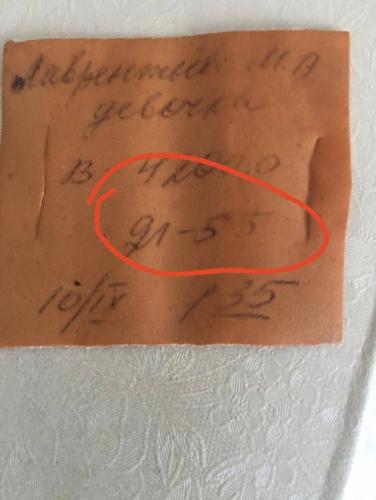 Лаврентьик М А
девочка
В 4200,0
дл-55
10/IV 1 35